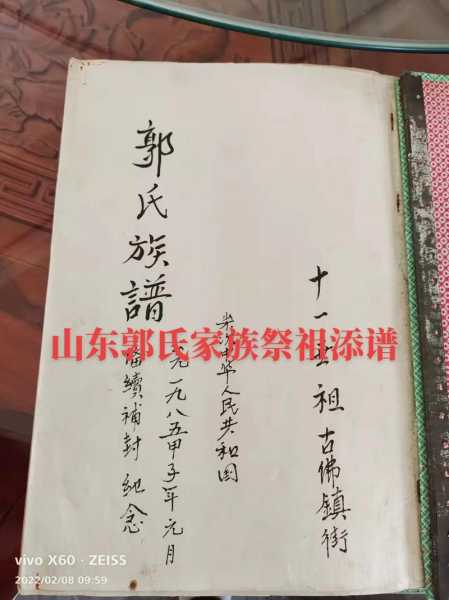 十一世祖 古佛鎮街
中华人民共和国
郭氏族譜
元一九八五甲子年元月
續補封 纪念
山东郭氏家族祭祖添谱
vivo X60 · ZEISS
2022/02/08 09:59